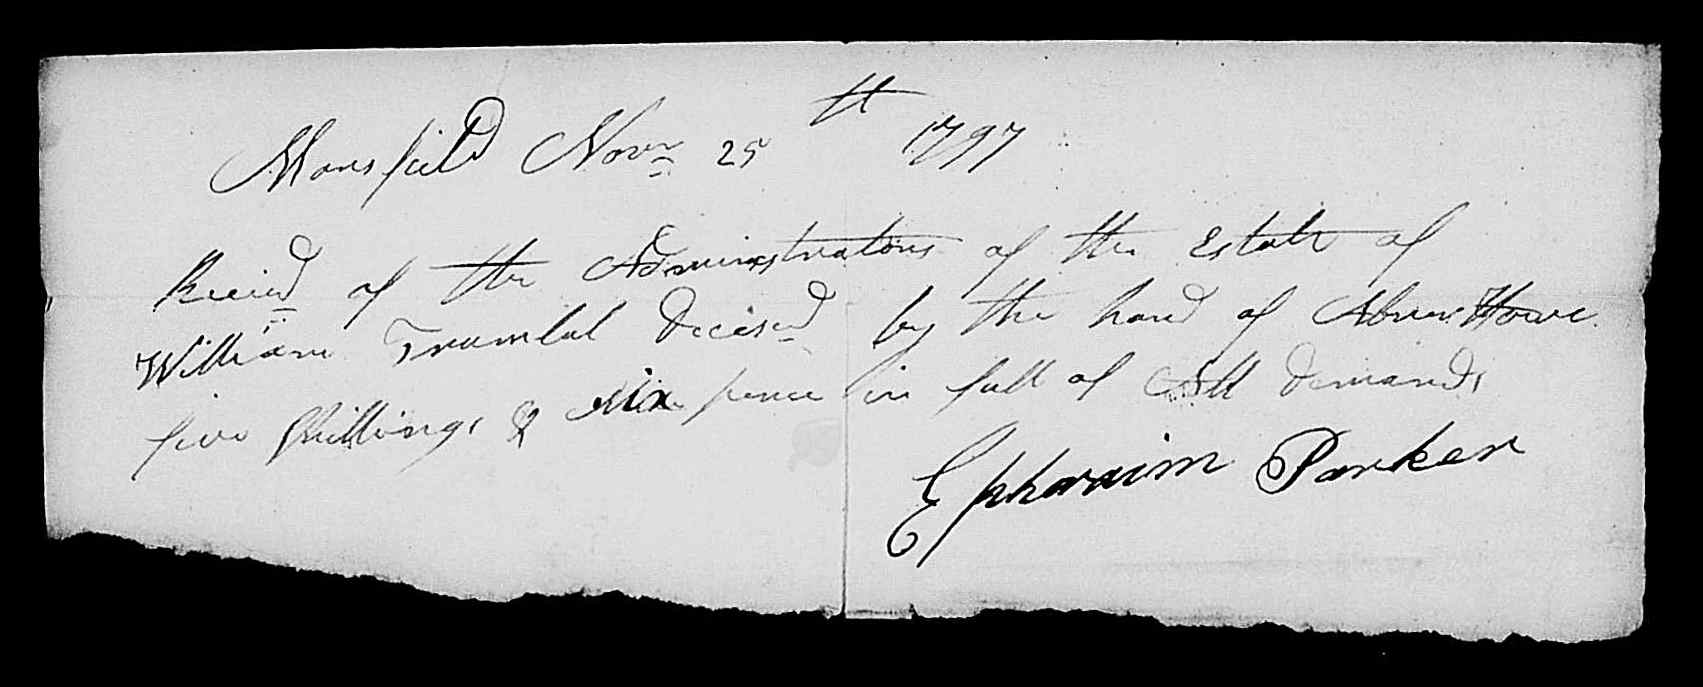 Mansfield Novr 25th 1797
Receivd of the Administrators of the Estate of
William Trumbal Decesed by the hand of Abner Howe
five Shillings & six pence in full of All Demands
Ephraim Parker